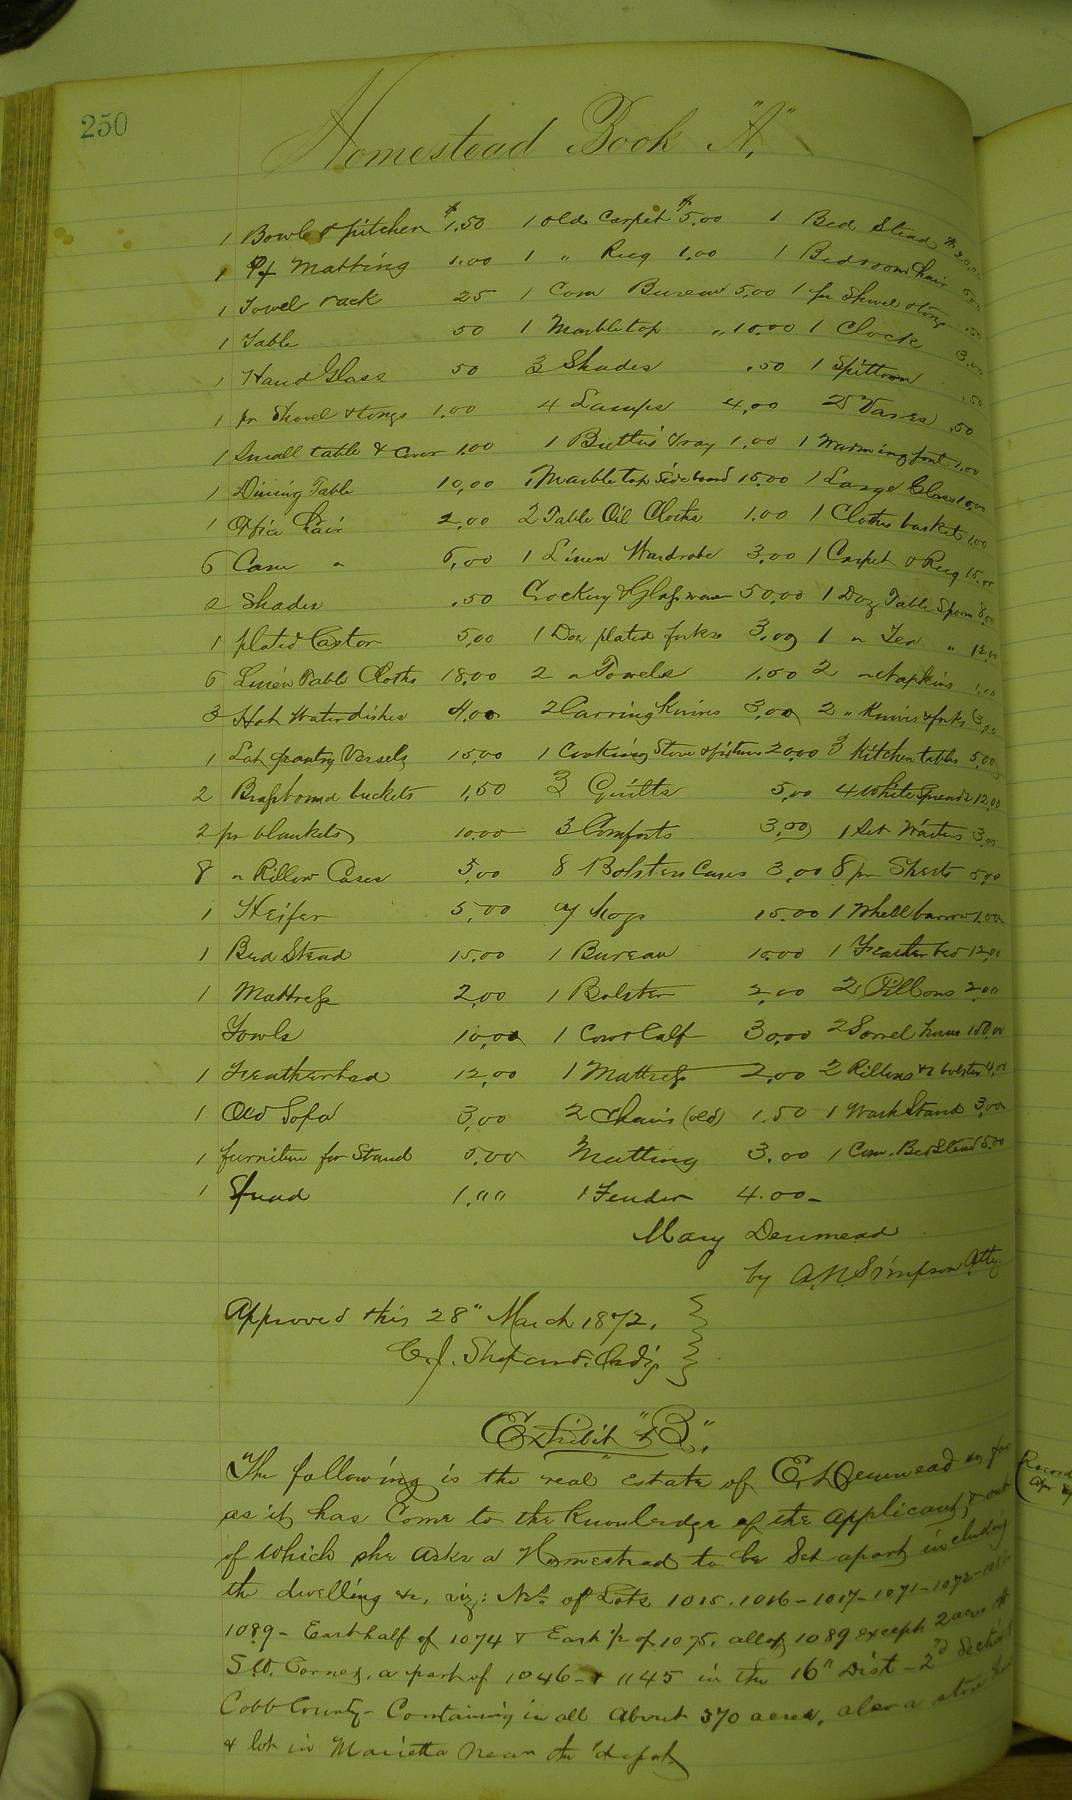 250
Homestead Book "A."
1 Bowl & pitcher $1.50 1 old Carpet $5.00 1 Bed Stead $20.00
1 Pf Matting 1.00 1 " Rug 1.00 1 Bedroom Chair
1 Towel rack 25 1 Com Bureau 5.00 1 pr Shovel & tongs .50
1 Table 50 1 Marbletop " 10.00 1 Clock 3.00
1 Hand Glass 50 3 Shades .50 1 Spittoon .50
1 pr Shovel & tongs 1.00 4 Lamps 4.00 2 Vases .50
1 Small table & Cover 1.00 1 Butlers Tray 1.00 1 Warming 1.00
1 Dining Table 10.00 1 Marble top Sideboard 15.00 1 Large Glass 10.00
1 Office Chair 2.00 2 Table Oil Cloths 1.00 1 Clothes basket 1.00
6 Cane " 6.00 1 Linen Wardrobe 3.00 1 Carpet & Rug 15.00
2 Shades .50 Crockery & Glassware 50.00 1 Doz Table Spoons 8.00
1 plated Castor 5.00 1 Doz plated forks 3.00 1 " Tea " 12.00
6 Linen Table Cloths 18.00 2 " Towels 1.50 2 " Napkins 1.00
3 Hot Water dishes 4.00 2 Carving Knives 3.00 2 " Knives & forks 3.00
1 Lot pantry Vessels 15.00 1 Cooking Stove & fixtures 20.00 3 Kitchen tables 5.00
2 Brassbound buckets 1.50 3 Quilts 5.00 4 White Spreads 12.00
2 pr blankets 10.00 3 Comforts 3.00 1 Set Waiters 3.00
8 " Pillow Cases 5.00 8 Bolsters Cases 3.00 8 pr Sheets 5.00
1 Heifer 5.00 hogs 15.00 1 Whellbarrow 1.00
1 Bed Stead 15.00 1 Bureau 10.00 1 Feather bed 12.00
1 Mattress 2.00 1 Bolster 2.00 2 Pillows 2.00
Fowls 10.00 1 Cow & Calf 30.00 2 Sorrel horses 150.00
1 Featherbed 12.00 1 Mattress 2.00 2 Pillows & 2 bolster 4.00
1 Old Sofa 3.00 2 Chairs (old) 1.50 1 Wash Stand 3.00
1 furniture for Stand 5.00 Matting 3.00 1 Com. Bedstead 5.00
1 Spread 1.00 1 Fender 4.00
Mary Denmead
by A.N. Simpson Atty.
Approved this 28" March 1872.
C.J. Shepard. Ordy.
Exhibit "B".
The following is the "real" estate of E. Denmead so far
as it has Come to the Knowledge of the applicant, & out
of which she asks a Homestead to be Set apart including
the dwelling &c, viz: Nos. of Lots 1015. 1016 - 1017 - 1071 - 1072 -
1089 - East half of 1074 & East 1/2 of 1075. all of 1089 except 2 acres
S.W. Corner, a part of 1046 - & 1145 in the 16" Dist - 2d Section
Cobb County - Containing in all about 370 acres, also a store
& lot in Marietta near the depot
Record
Apr